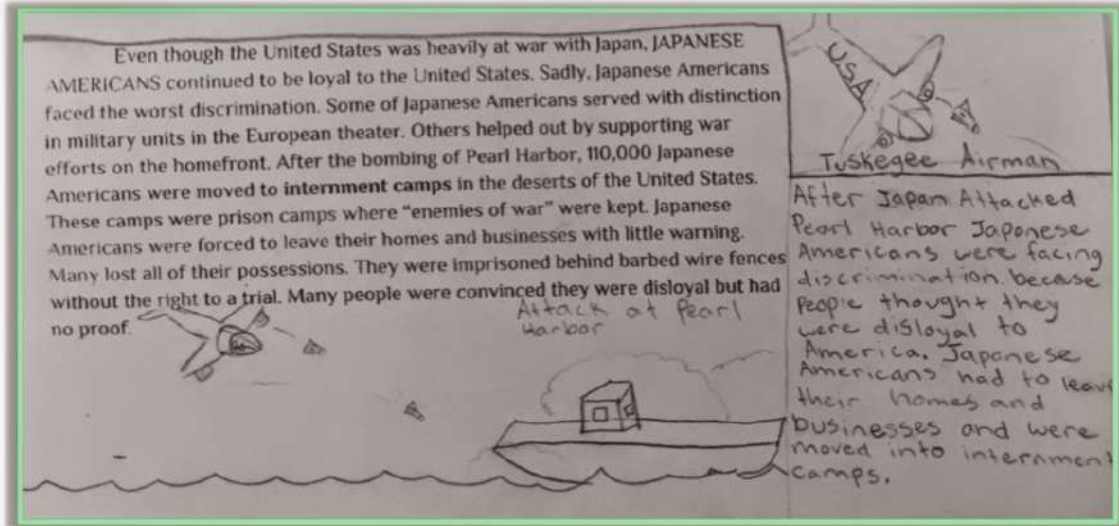 Even though the United States was heavily at war with Japan, JAPANESE
AMERICANS continued to be loyal to the United States. Sadly, Japanese Americans
faced the worst discrimination. Some of Japanese Americans served with distinction
in military units in the European theater. Others helped out by supporting war
efforts on the homefront. After the bombing of Pearl Harbor, 110,000 Japanese
Americans were moved to internment camps in the deserts of the United States.
These camps were prison camps where "enemies of war" were kept. Japanese
Americans were forced to leave their homes and businesses with little warning.
Many lost all of their possessions. They were imprisoned behind barbed wire fences
without the right to a trial. Many people were convinced they were disloyal but had
no proof.
Attack at Pearl
Harbor
USA
Tuskegee Airman
After Japan Attacked
Pearl Harbor Japonese
Americans were facing
discrimination. because
People thought they
were disloyal to
America. Japonese
Americans had to leave
their homes and
businesses and were
moved into internment
camps.